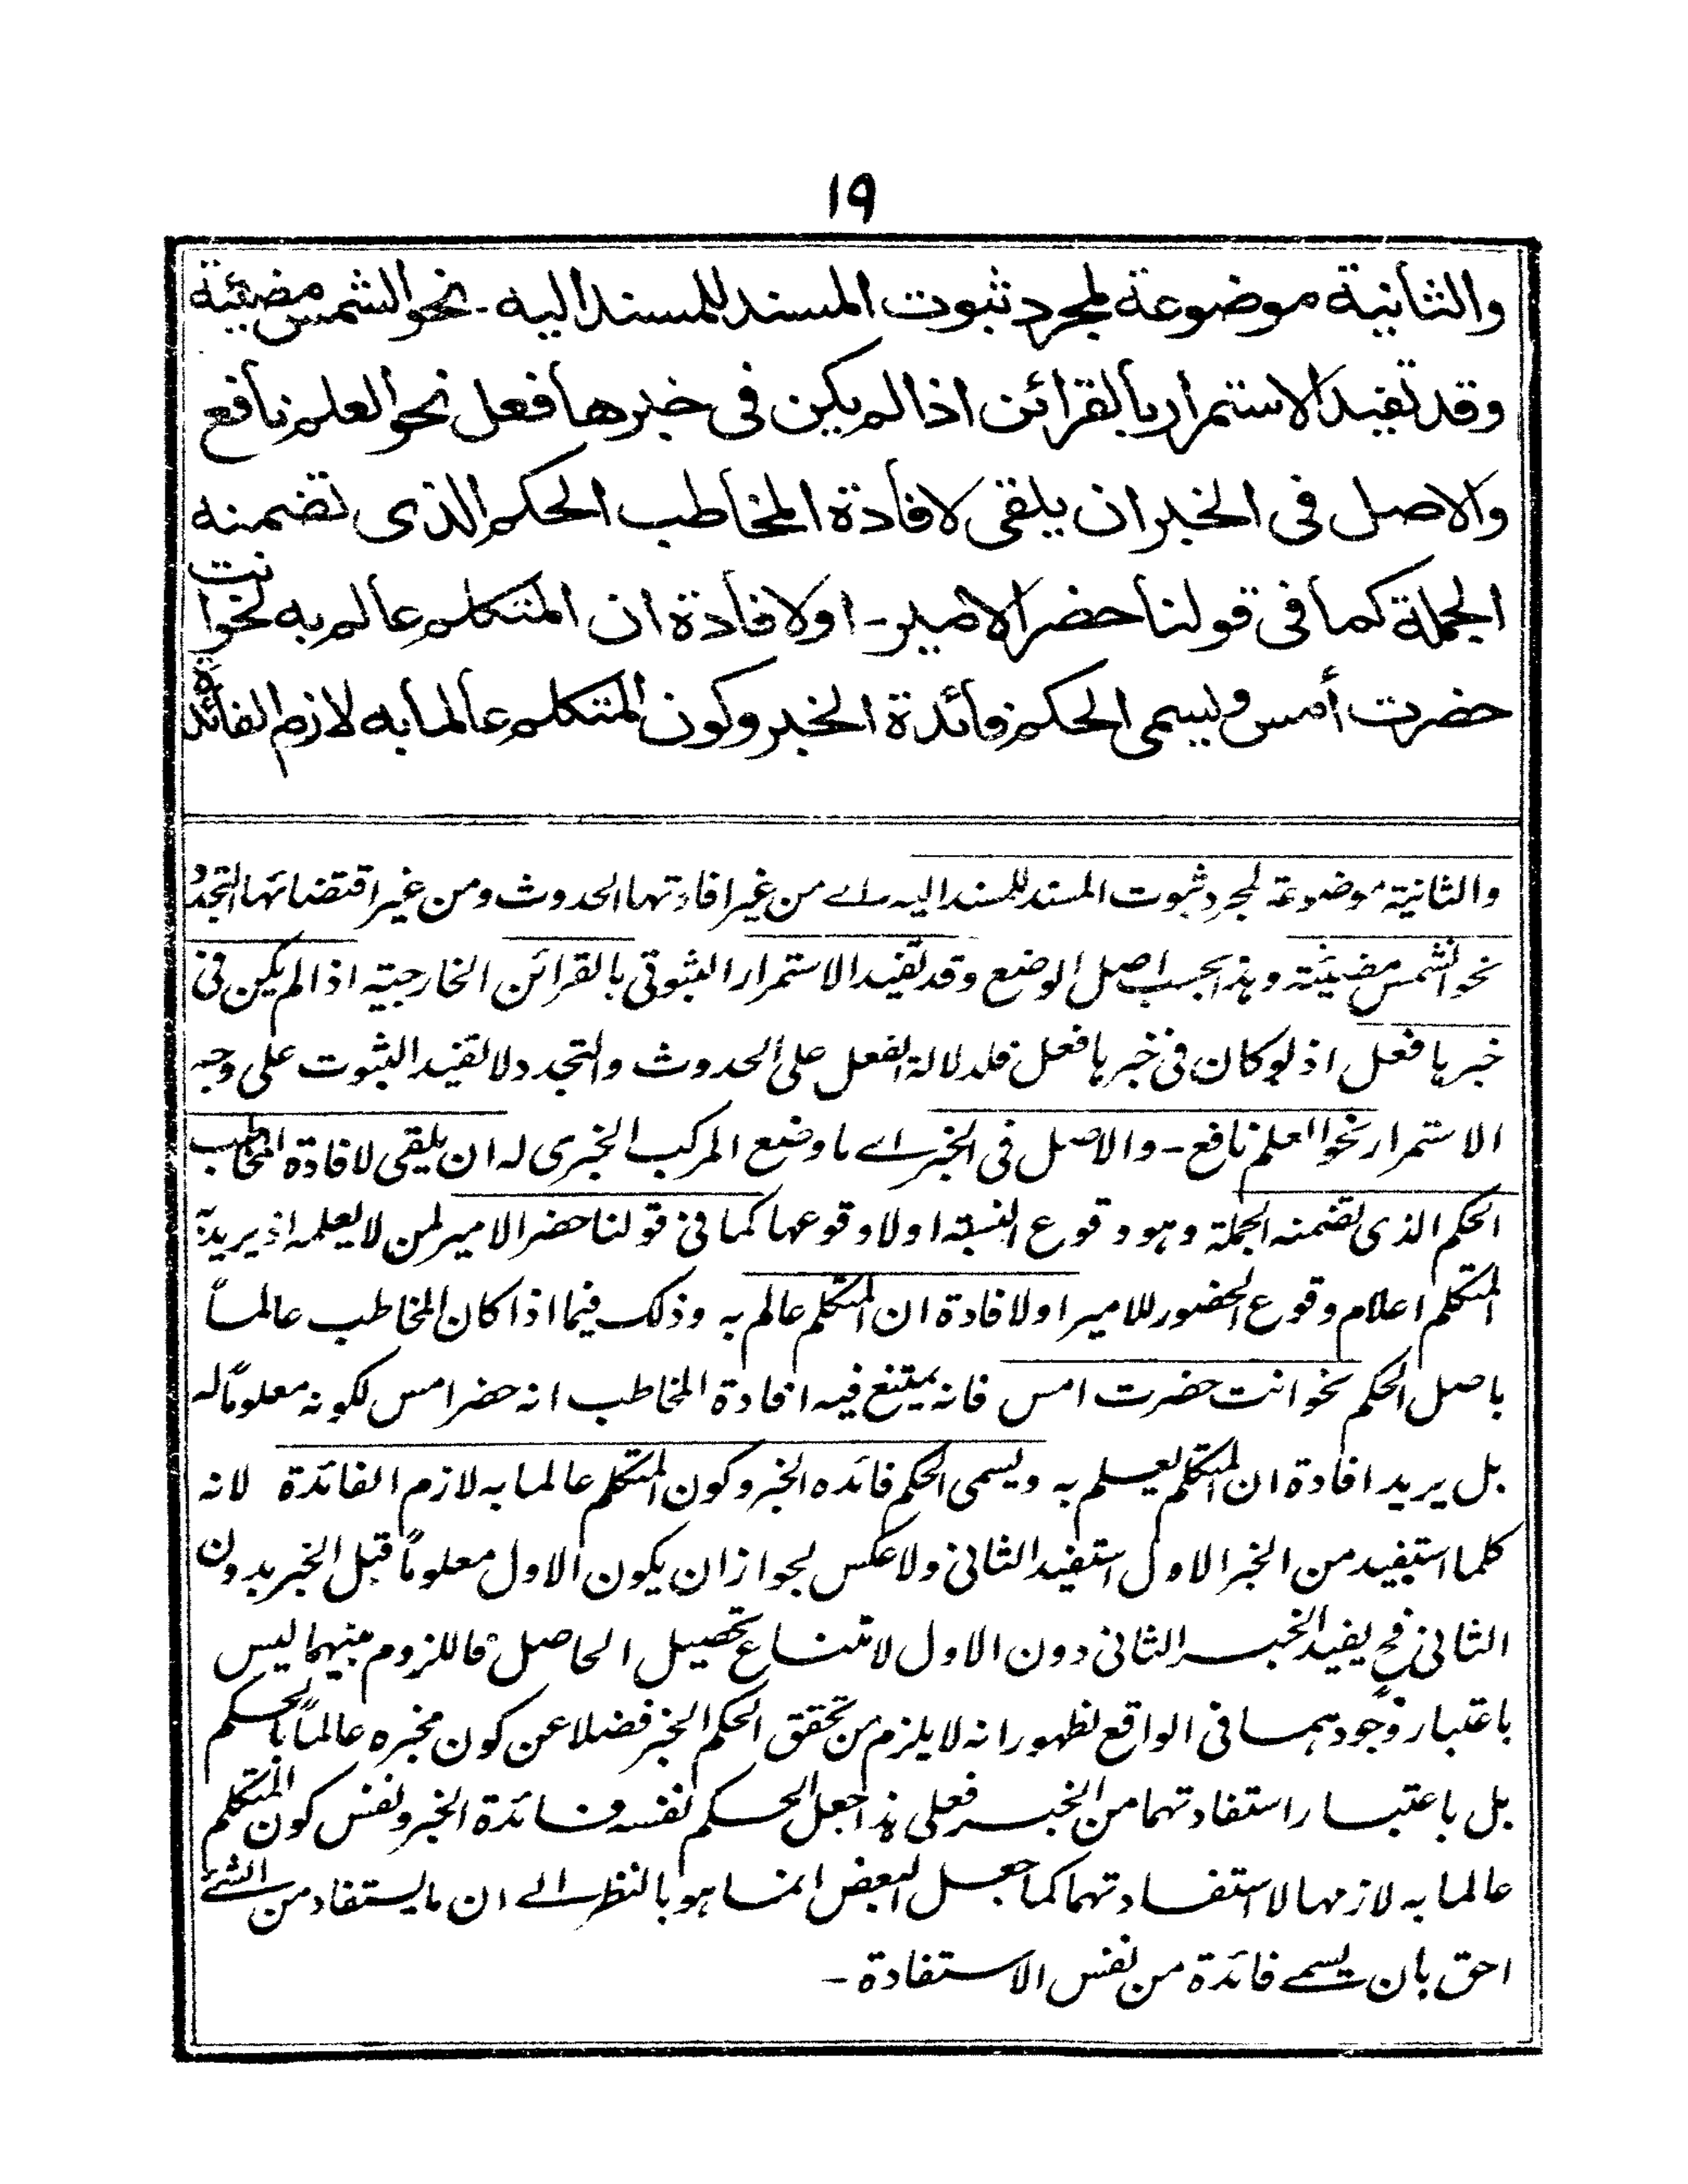 ١٩
والثانية موضوعة لمجرد ثبوت المسند للمسند اليه - نحو الشمس مضيئة
وقد تفيد الاستمرار بالقرائن اذا لم يكن فى خبرها فعل نحو العلم نافع
والاصل فى الخبر ان يلقى لافادة المخاطب الحكم الذى تضمنه
الجملة كما فى قولنا حضر الامير - او لافادة ان المتكلم عالم به نحو انت
حضرت أمس ويسمى الحكم فائدة الخبر وكون المتكلم عالما به لازم الفائدة
والثانية موضوعة لمجرد ثبوت المسند للمسند اليه اے من غير افادتها الحدوث ومن غير اقتضائها التجدد
نحو الشمس مضيئة وهذا بحسب اصل الوضع وقد تفيد الاستمرار الثبوتى بالقرائن الخارجية اذا لم يكن فى
خبرها فعل اذ لو كان فى خبرها فعل فلدلالة الفعل على الحدوث والتجدد لا تفيد الثبوت على وجه
الاستمرار نحو العلم نافع - والاصل فى الخبر اے ما وضع المركب الخبرى له ان يلقى لافادة المخاطب
الحكم الذى تضمنه الجملة وهو وقوع النسبة او لا وقوعها كما فى قولنا حضر الامير لمن لا يعلمه اذ يريد
المتكلم اعلام وقوع الحضور للامير او لافادة ان المتكلم عالم به وذلك فيما اذا كان المخاطب عالماً
باصل الحكم نحو انت حضرت امس فانه يمتنع فيه افادة المخاطب انه حضر امس لكونه معلوماً له
بل يريد افادة ان المتكلم يعلم به ويسمى الحكم فائده الخبر وكون المتكلم عالما به لازم الفائدة لانه
كلما استفيد من الخبر الاول استفيد الثانى ولا عكس لجواز ان يكون الاول معلوماً قبل الخبر بدون
الثانى فح يفيد الخبر الثانى دون الاول لامتناع تحصيل الحاصل فاللزوم بينهما ليس
باعتبار وجودهما فى الواقع لظهور انه لا يلزم من تحقق الحكم الخبر فضلا عن كون مخبره عالماً بالحكم
بل باعتبار استفادتهما من الخبر فعلى هذا جعل الحكم نفسه فائدة الخبر ونفس كون المتكلم
عالما به لازمها لا استفادتهما كما جعل البعض انما هو بالنظر الے ان ما يستفاد من الشئ
احق بان يسمے فائدة من نفس الاستفادة -